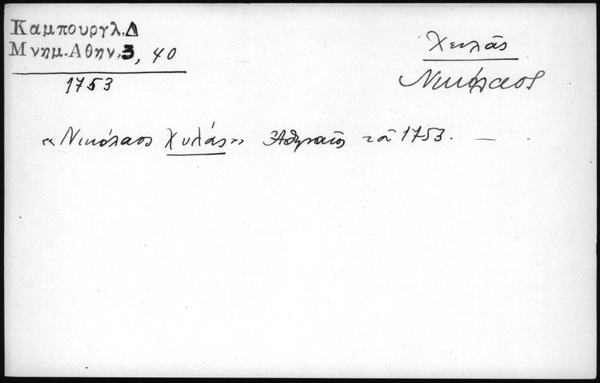 Καμπουργλ.Δ
Μνημ.Αθην.3, 40
1753
Χειλᾶς
Νικόλαος
«Νικόλαος Χυλάς» Ἀθηναῖος τοῦ 1753. —